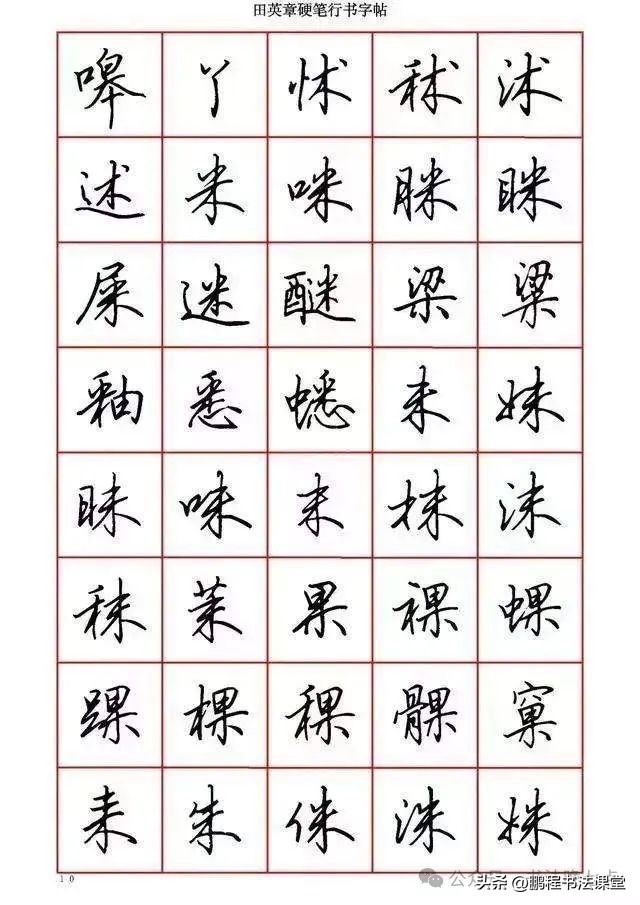 田英章硬笔行书字帖
嗥丫怵秫沭
述米咪脒眯
屎迷醚梁粱
釉悉蟋未妹
昧味末抹沫
秣茉果裸蜾
踝棵稞髁窠
耒朱侏洙姝
10
头条@鹏程书法课堂